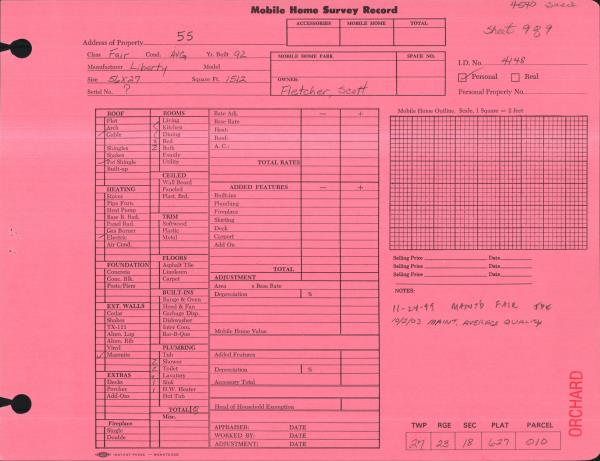 Mobile Home Survey Record
ACCESSORIES MOBILE HOME TOTAL
Sheet 9 of 9
Address of Property 55
Class Fair Cond. AVG Yr. Built 92
Manufacturer Liberty Model
Size 56x27 Square Ft. 1512
Serial No. ?
MOBILE HOME PARK SPACE NO.
OWNER:
Fletcher, Scott
I.D. No. 4148
Personal Real
Personal Property No.
ROOF
Flat
Arch
Gable
Shingles
Shakes
Built-up
HEATING
Stoves
Pipe Furn.
Heat Pump
Base B. Rad.
Panel Rad.
Gas Burner
Electric
Air Cond.
FOUNDATION
Concrete
Conc. Blk.
Posts/Piers
EXT. WALLS
Cedar
Shakes
TX-111
Alum. Lap
Alum. Rib
Vinyl
Masonite
EXTRAS
Decks
Porches
Add-Ons
Fireplace
Single
Double
ROOMS
Living
Kitchen
Dining
3 Bed
2 Bath
Family
Utility
CEILED
Wall Board
Paneled
Plast. Brd.
TRIM
Softwood
Plastic
Metal
FLOORS
Asphalt Tile
Linoleum
Carpet
BUILT-INS
Range & Oven
Hood & Fan
Garbage Disp.
Dishwasher
Inter Com.
Bar-B-Que
PLUMBING
Tub
2 Shower
2 Toilet
Lavatory
1 Sink
1 H.W. Heater
Hot Tub
TOTAL
Misc.
Rate Adj. — +
Base Rate
Heat:
Roof:
A. C.:
TOTAL RATES
ADDED FEATURES — +
Built-ins
Plumbing
Fireplace
Skirting
Deck
Carport
Add On
TOTAL
ADJUSTMENT
Area x Base Rate
Depreciation %
Mobile Home Value
Added Features
Depreciation %
Accessory Total
Head of Household Exemption
APPRAISER: DATE
WORKED BY: DATE
ADJUSTMENT: DATE
Mobile Home Outline. Scale, 1 Square = 2 feet
Selling Price Date
Selling Price Date
Selling Price Date
NOTES:
11-24-99 MANTD FAIR
10/2/03 MAINT. AVERAGE QUALITY
ORCHARD
TWP RGE SEC PLAT PARCEL
27 23 18 627 010